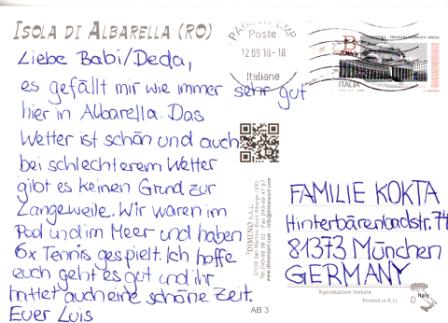 ISOLA DI ALBARELLA (RO)
Liebe Babi/Deda,
es gefällt mir wie immer sehr gut
hier in Albarella. Das
Wetter ist schön und auch
bei schlechterem Wetter
gibt es keinen Grund zur
Langeweile. Wir waren im
Pool und im Meer und haben
6x Tennis gespielt. Ich hoffe
euch geht es gut und ihr
hattet auch eine schöne Zeit.
Euer Luis
CMP
Poste
12.09.18-18
Italiane
B
ITALIA
FAMILIE KOKTA
Hinterbärenbadstr. 74
81373 München
GERMANY
Riproduzione Vietata
Printed in E.U.
Italy
AB 3